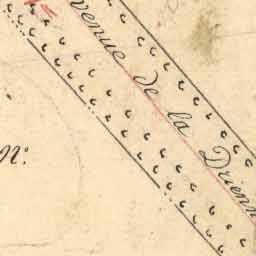 venue de la Drienn
N: